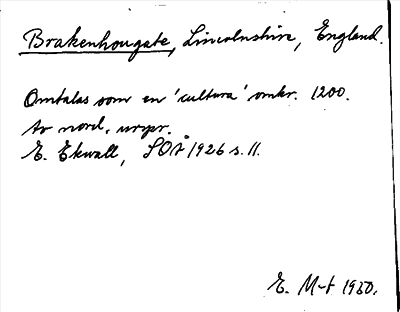 Brakenhougate, Lincolnshire, England.
Omtalas som en 'cultura' omkr. 1200.
Av nord. urspr.
E. Ekwall, SOÅ 1926 s. 11.
E. M-t 1950.